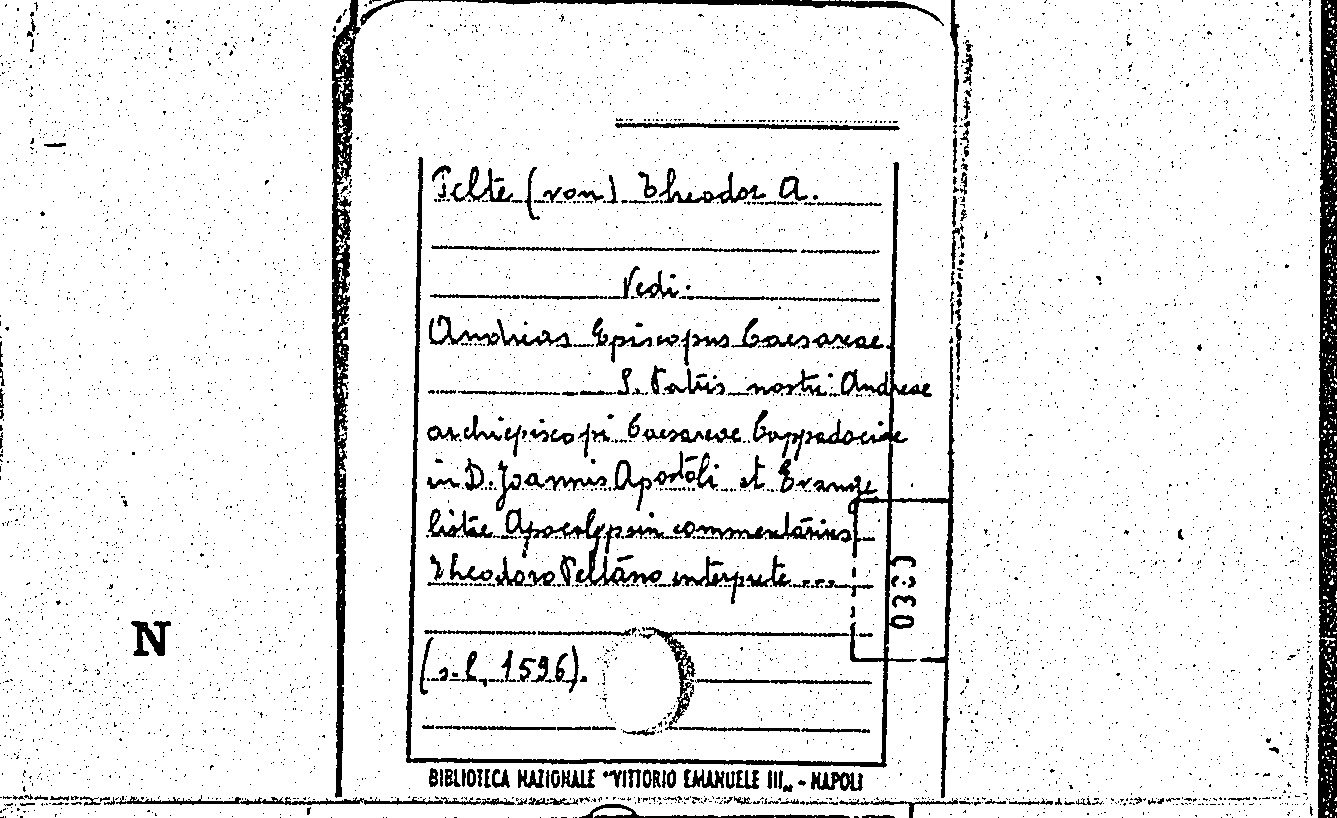 Pelte (von) Theodor A.
Vedi:
Andreas Episcopus Caesareae.
S. Patris nostri Andreae
archiepiscopi Caesareae Cappadociae
in D. Joannis Apostoli et Evange
listae Apocalypsin commentarius
Theodoro Peltano interprete ...
(s.l, 1596).
N
BIBLIOTECA NAZIONALE "VITTORIO EMANUELE III„ - NAPOLI